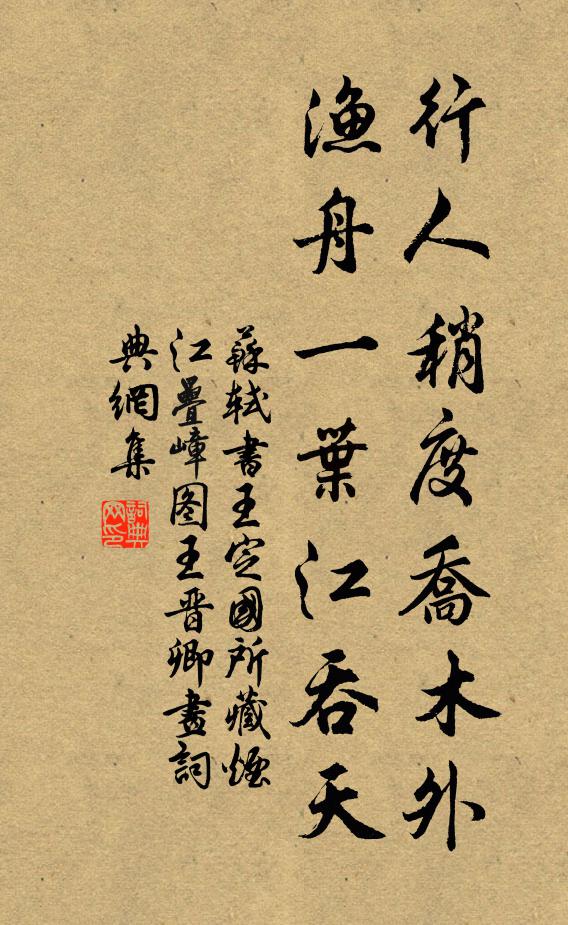 行人稍度喬木外
漁舟一葉江吞天
蘇軾書王定國所藏煙
江疊嶂图王晋卿畫詞
典網集
詞典
网印